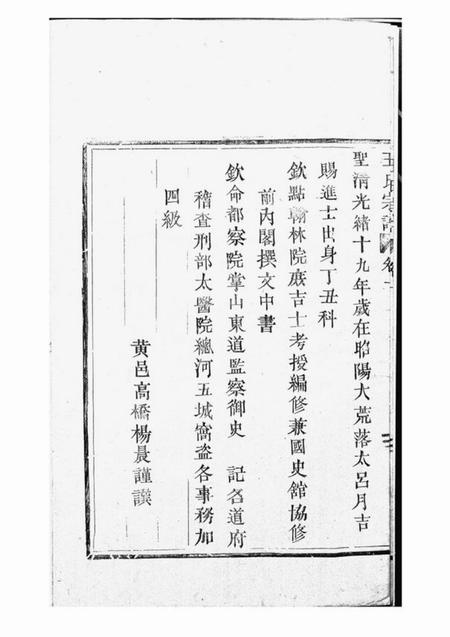 王氏宗譜 卷一
聖清光緒十九年歲在昭陽大荒落太呂月吉
賜進士出身丁丑科
欽點翰林院庶吉士考授編修兼國史舘協修
前內閣撰文中書
欽命都察院掌山東道監察御史 記名道府
稽查刑部太醫院總河五城窩盗各事務加
四級
黄邑高橋楊晨謹譔